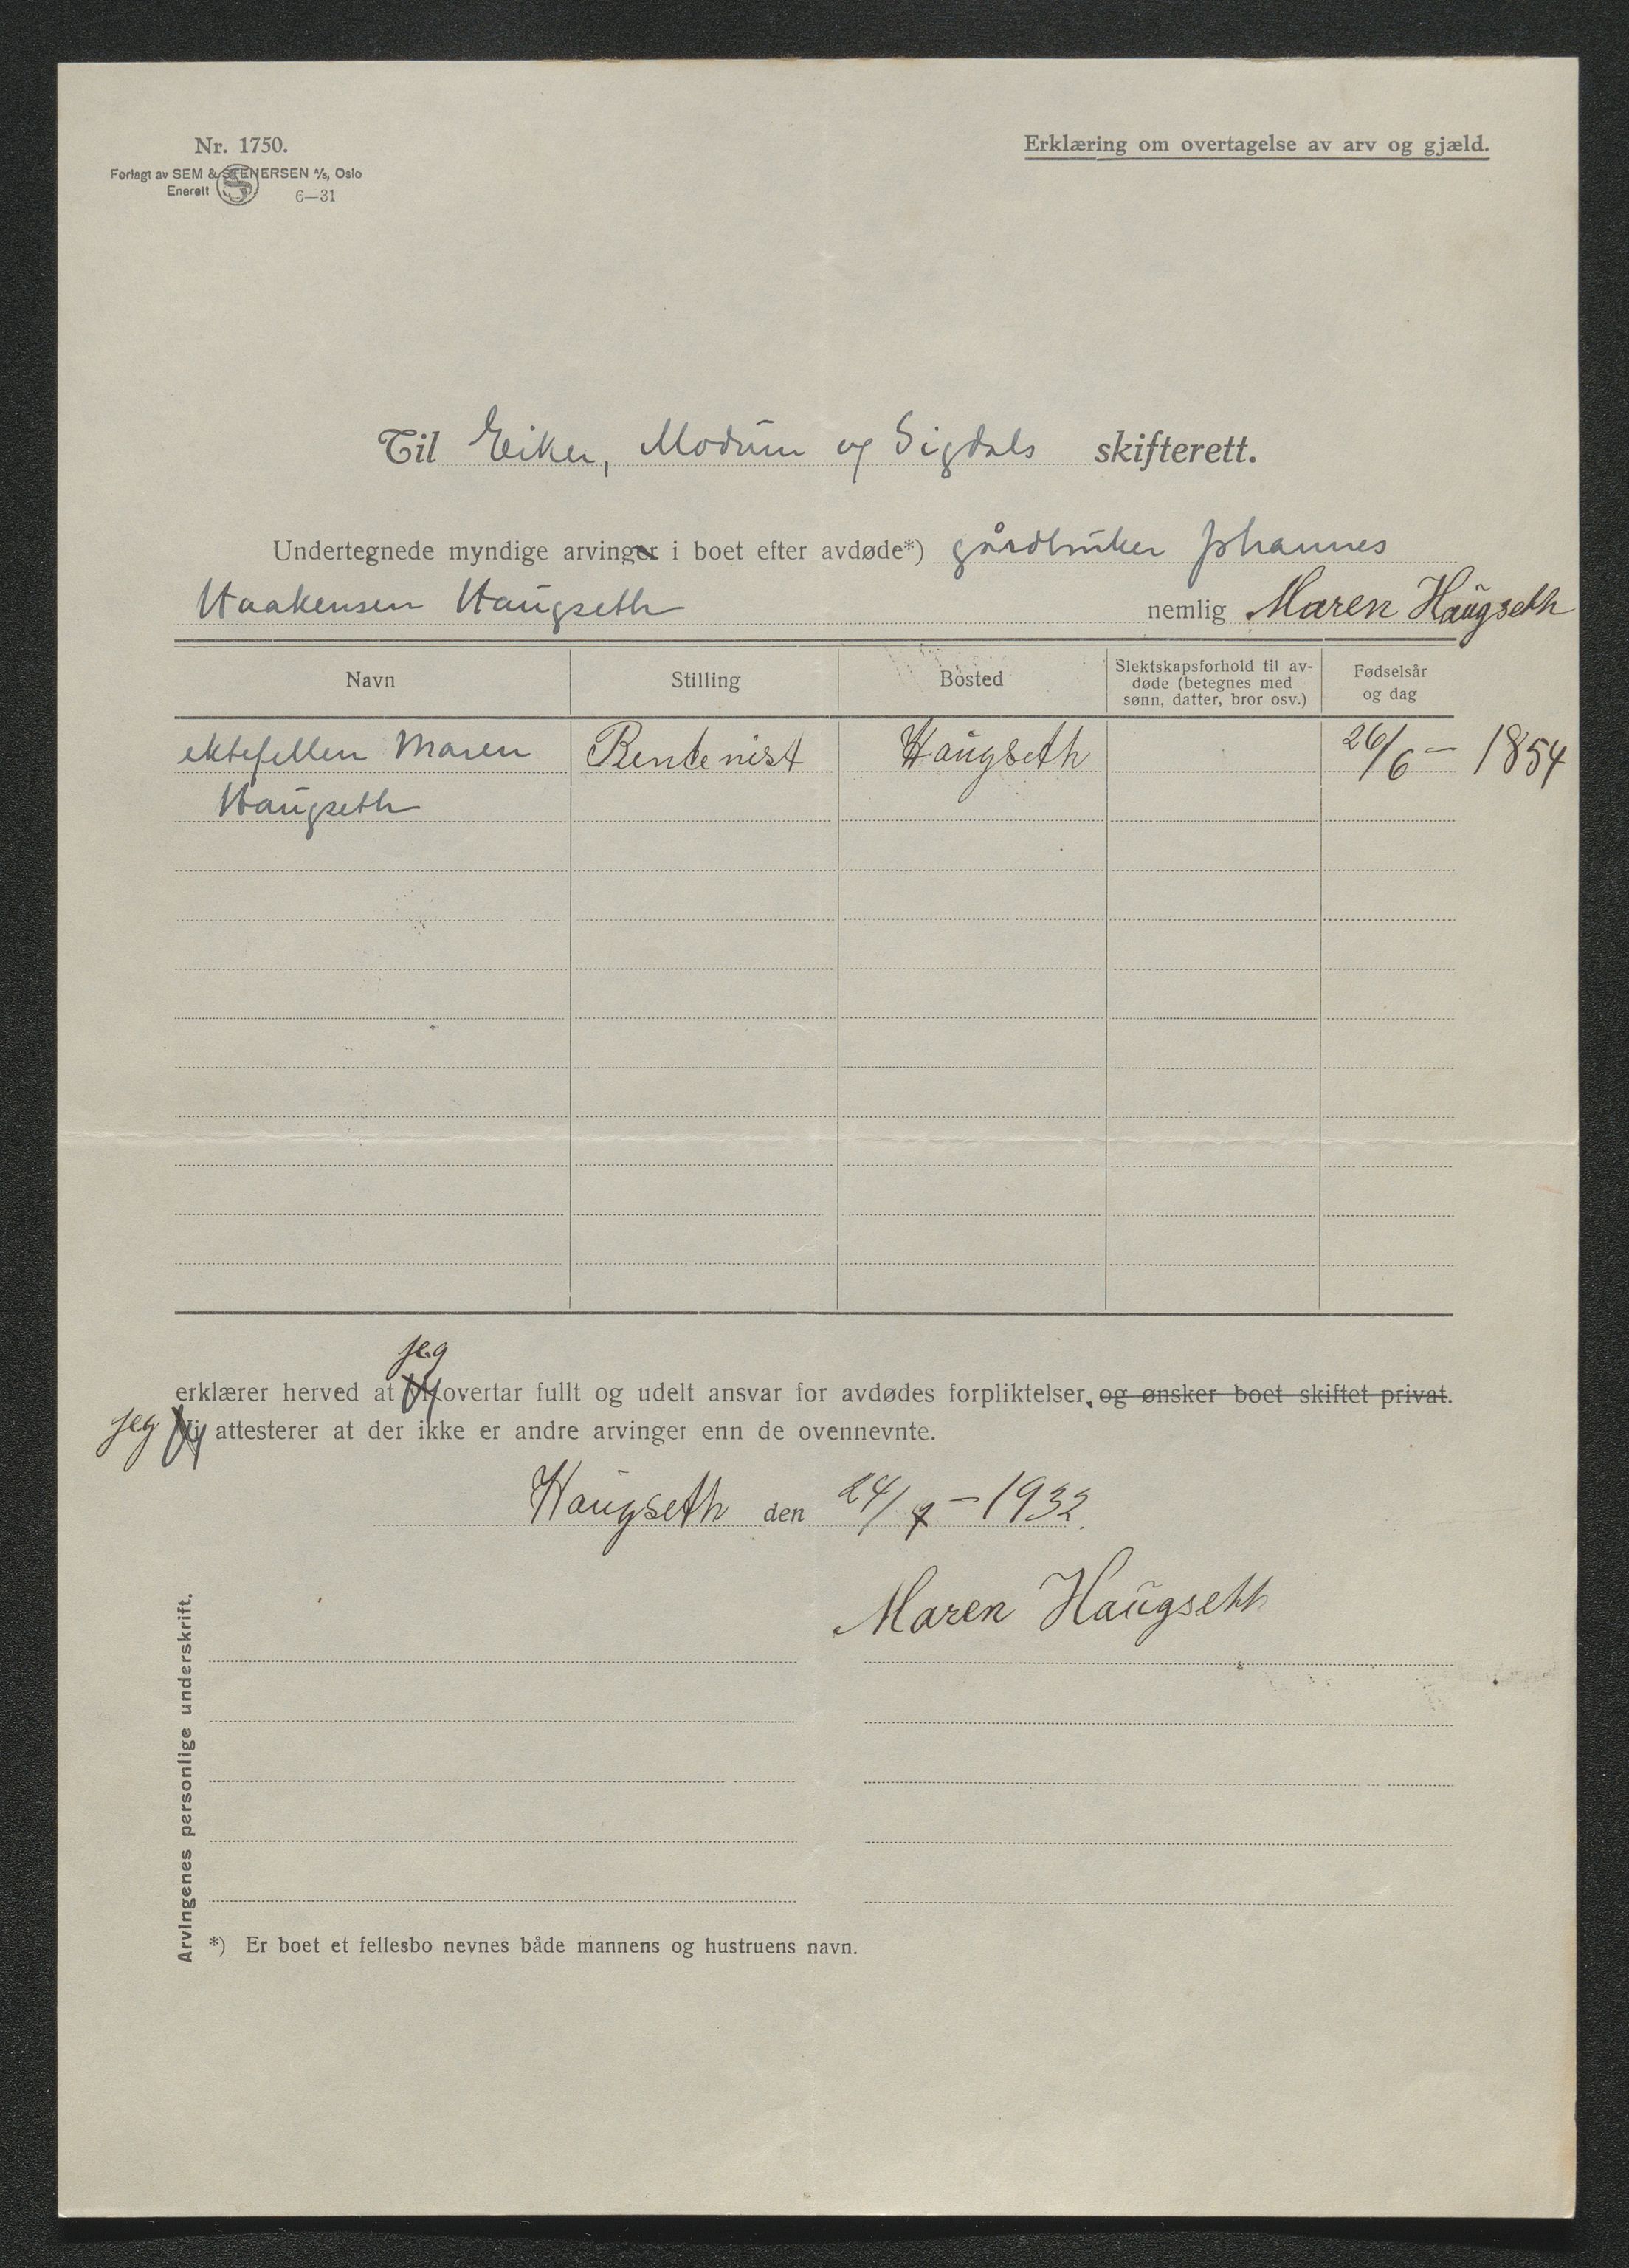 Nr. 1750.
Forlagt av SEM & STENERSEN A/s, Oslo
Enerett S 6—31
Erklæring om overtagelse av arv og gjæld.
Til Eiker, Modum og Sigdals skifterett.
Undertegnede myndige arvinger i boet efter avdøde*) gårdbruker Johannes
Haakensen Haugseth nemlig Maren Haugseth
Navn Stilling Bosted Slektskapsforhold til av-
døde (betegnes med
sønn, datter, bror osv.) Fødselsår
og dag
ektefellen Maren Rentenist Haugseth 26/6 – 1854
Haugseth
jeg
erklærer herved at vi overtar fullt og udelt ansvar for avdødes forpliktelser, og ønsker boet skiftet privat.
jeg Vi attesterer at der ikke er andre arvinger enn de ovennevnte.
Haugseth den 24/7 – 1932.
Maren Haugseth
Arvingenes personlige underskrift.
*) Er boet et fellesbo nevnes både mannens og hustruens navn.